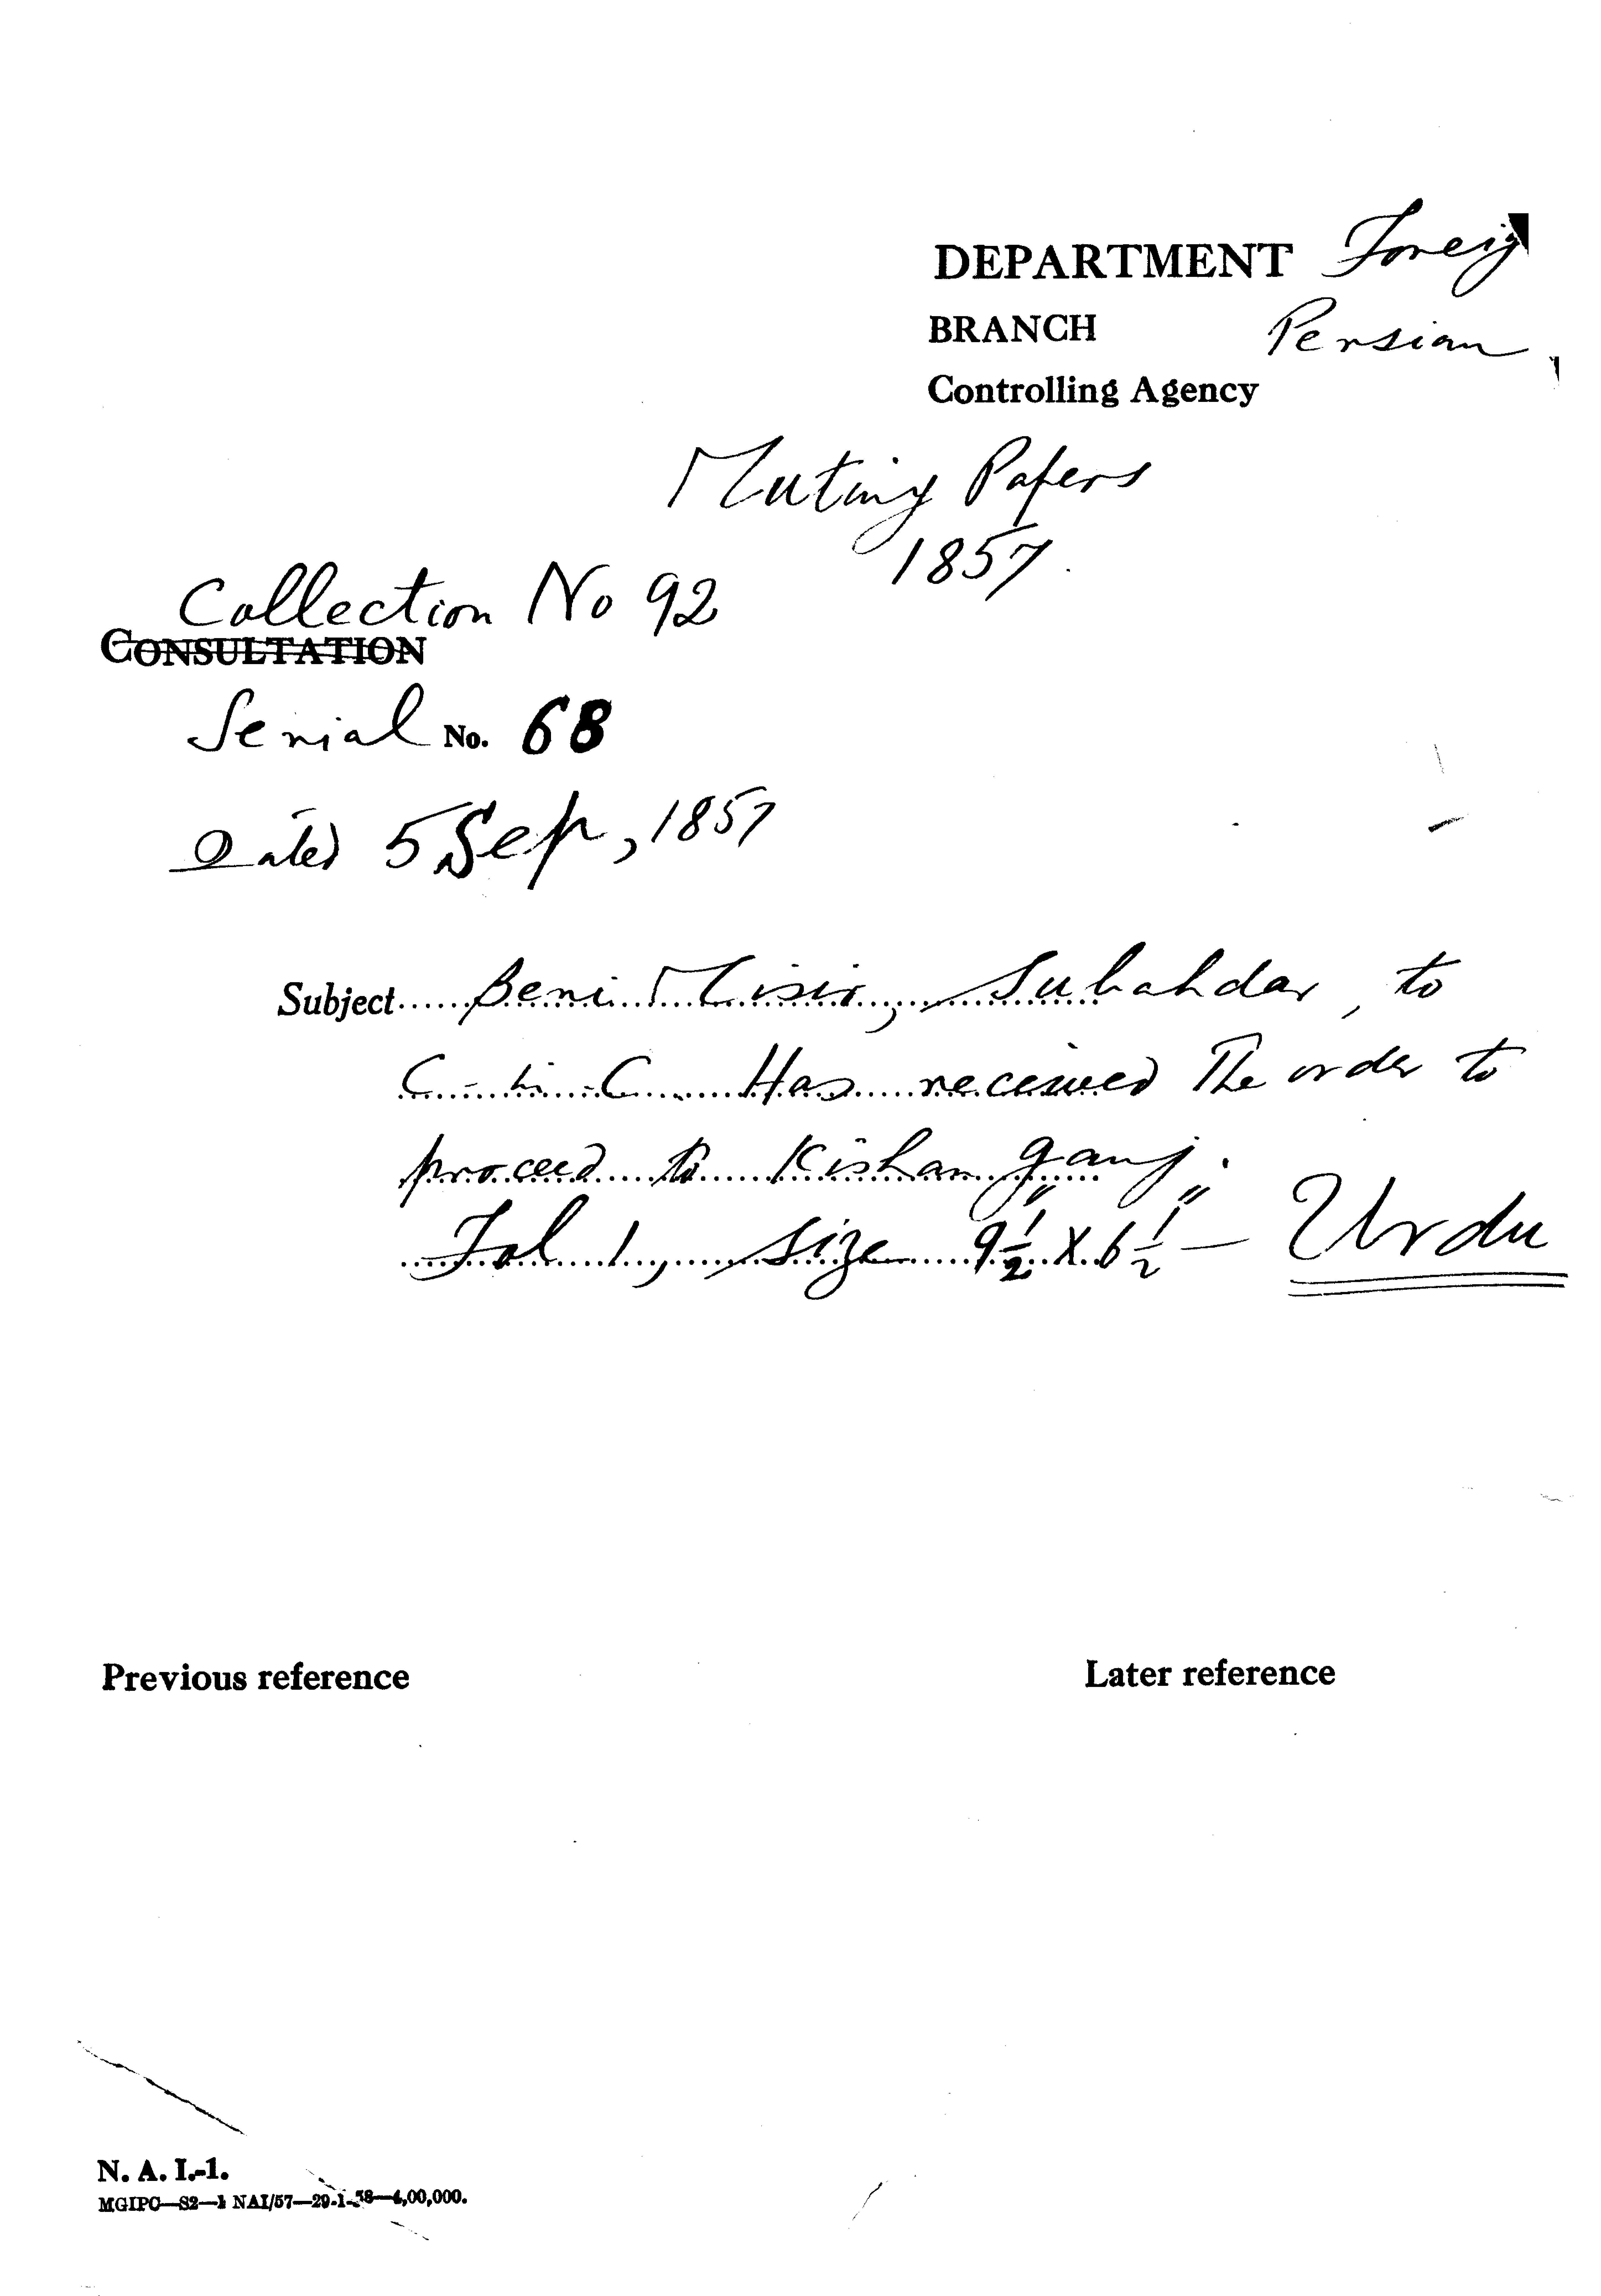 DEPARTMENT Foreig
BRANCH Persian
Controlling Agency
Mutiny Papers
1857.
Collection No 92
CONSULTATION
Serial No. 68
Dated 5 Sep, 1857
Subject Beni Misir, Subahdar, to
C-in-C. Has received The order to
proceed to Kishan ganj.
Fol 1, size 9½" X 6½" — Urdu
Previous reference
Later reference
N. A. I.-1.
MGIPC—S2—1 NAI/57—29-1-58—4,00,000.